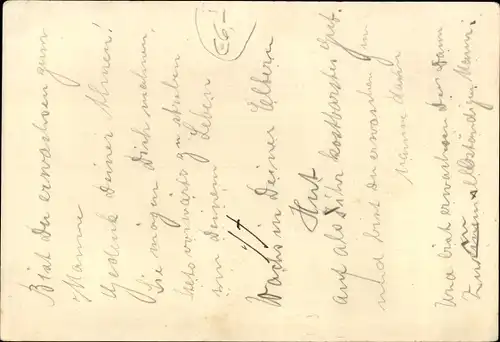 Bist Du erwachsen zum
Manne
Gedenk Deiner Ahnen!
Sie mögen Dich mahnen,
stets vorwärts zu streben
in Deinem Leben
26,-
Wachs in Deiner Eltern
Hut
auf als ihr kostbarstes Gut
und bist du erwachsen zum
Manne dann
Und bist erwachsen Du dann
zum selbständigen Mann.